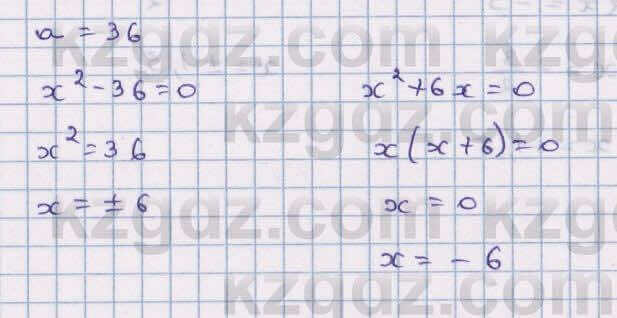 a = 36
x² - 36 = 0
x² = 36
x = ± 6
x² + 6x = 0
x(x + 6) = 0
x = 0
x = - 6
kzgdz.com
kzgdz.com
kzgdz.com
kzgdz.com